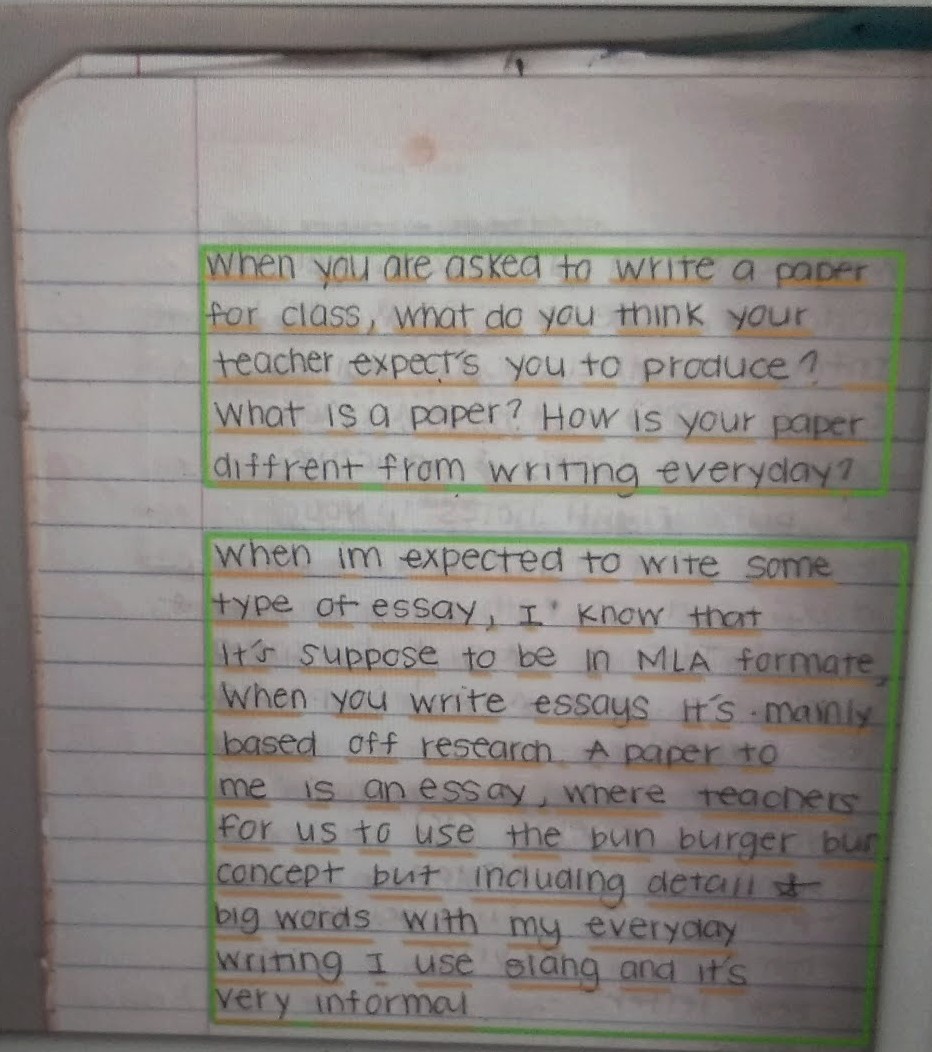 When you are asked to write a paper
for class, what do you think your
teacher expect's you to produce?
What is a paper? How is your paper
diffrent from writing everyday?
When im expected to wite some
type of essay, I' know that
it's suppose to be in MLA formate,
When you write essays it's mainly
based off research. A paper to
me is an essay, where teachers
for us to use the bun burger bun
concept but including detail &
big words with my everyday
writing I use slang and it's
very informal